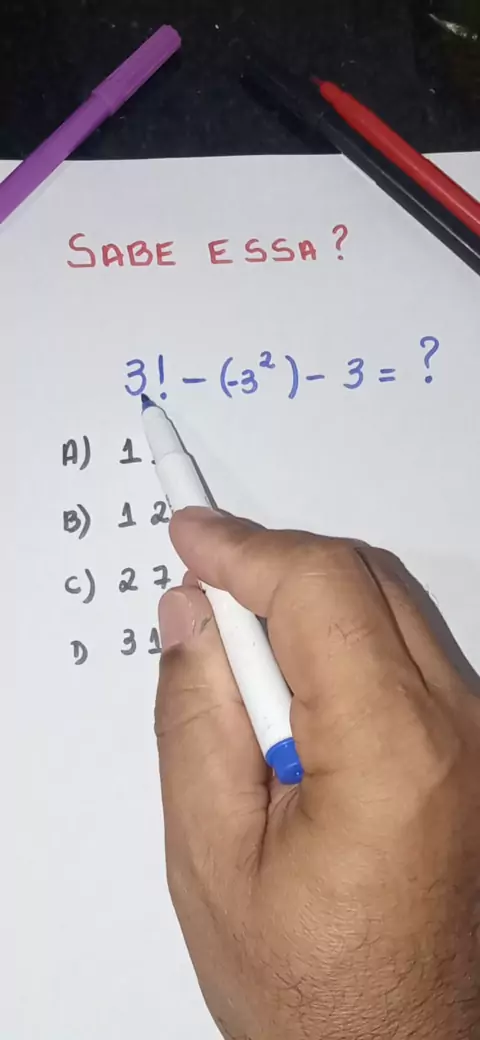 SABE ESSA?
3! - (-3²) - 3 = ?
A) 1
B) 12
C) 27
D 31